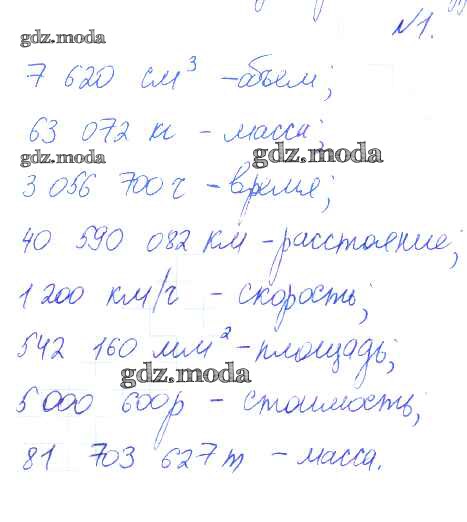 №1.
gdz.moda
7 620 см³ - объем;
63 072 кг - масса;
gdz.moda
gdz.moda
3 056 700 ч - время;
40 590 082 км - расстояние;
1 200 км/ч - скорость;
542 160 мм² - площадь;
gdz.moda
5 000 600 р - стоимость;
81 703 627 т - масса.